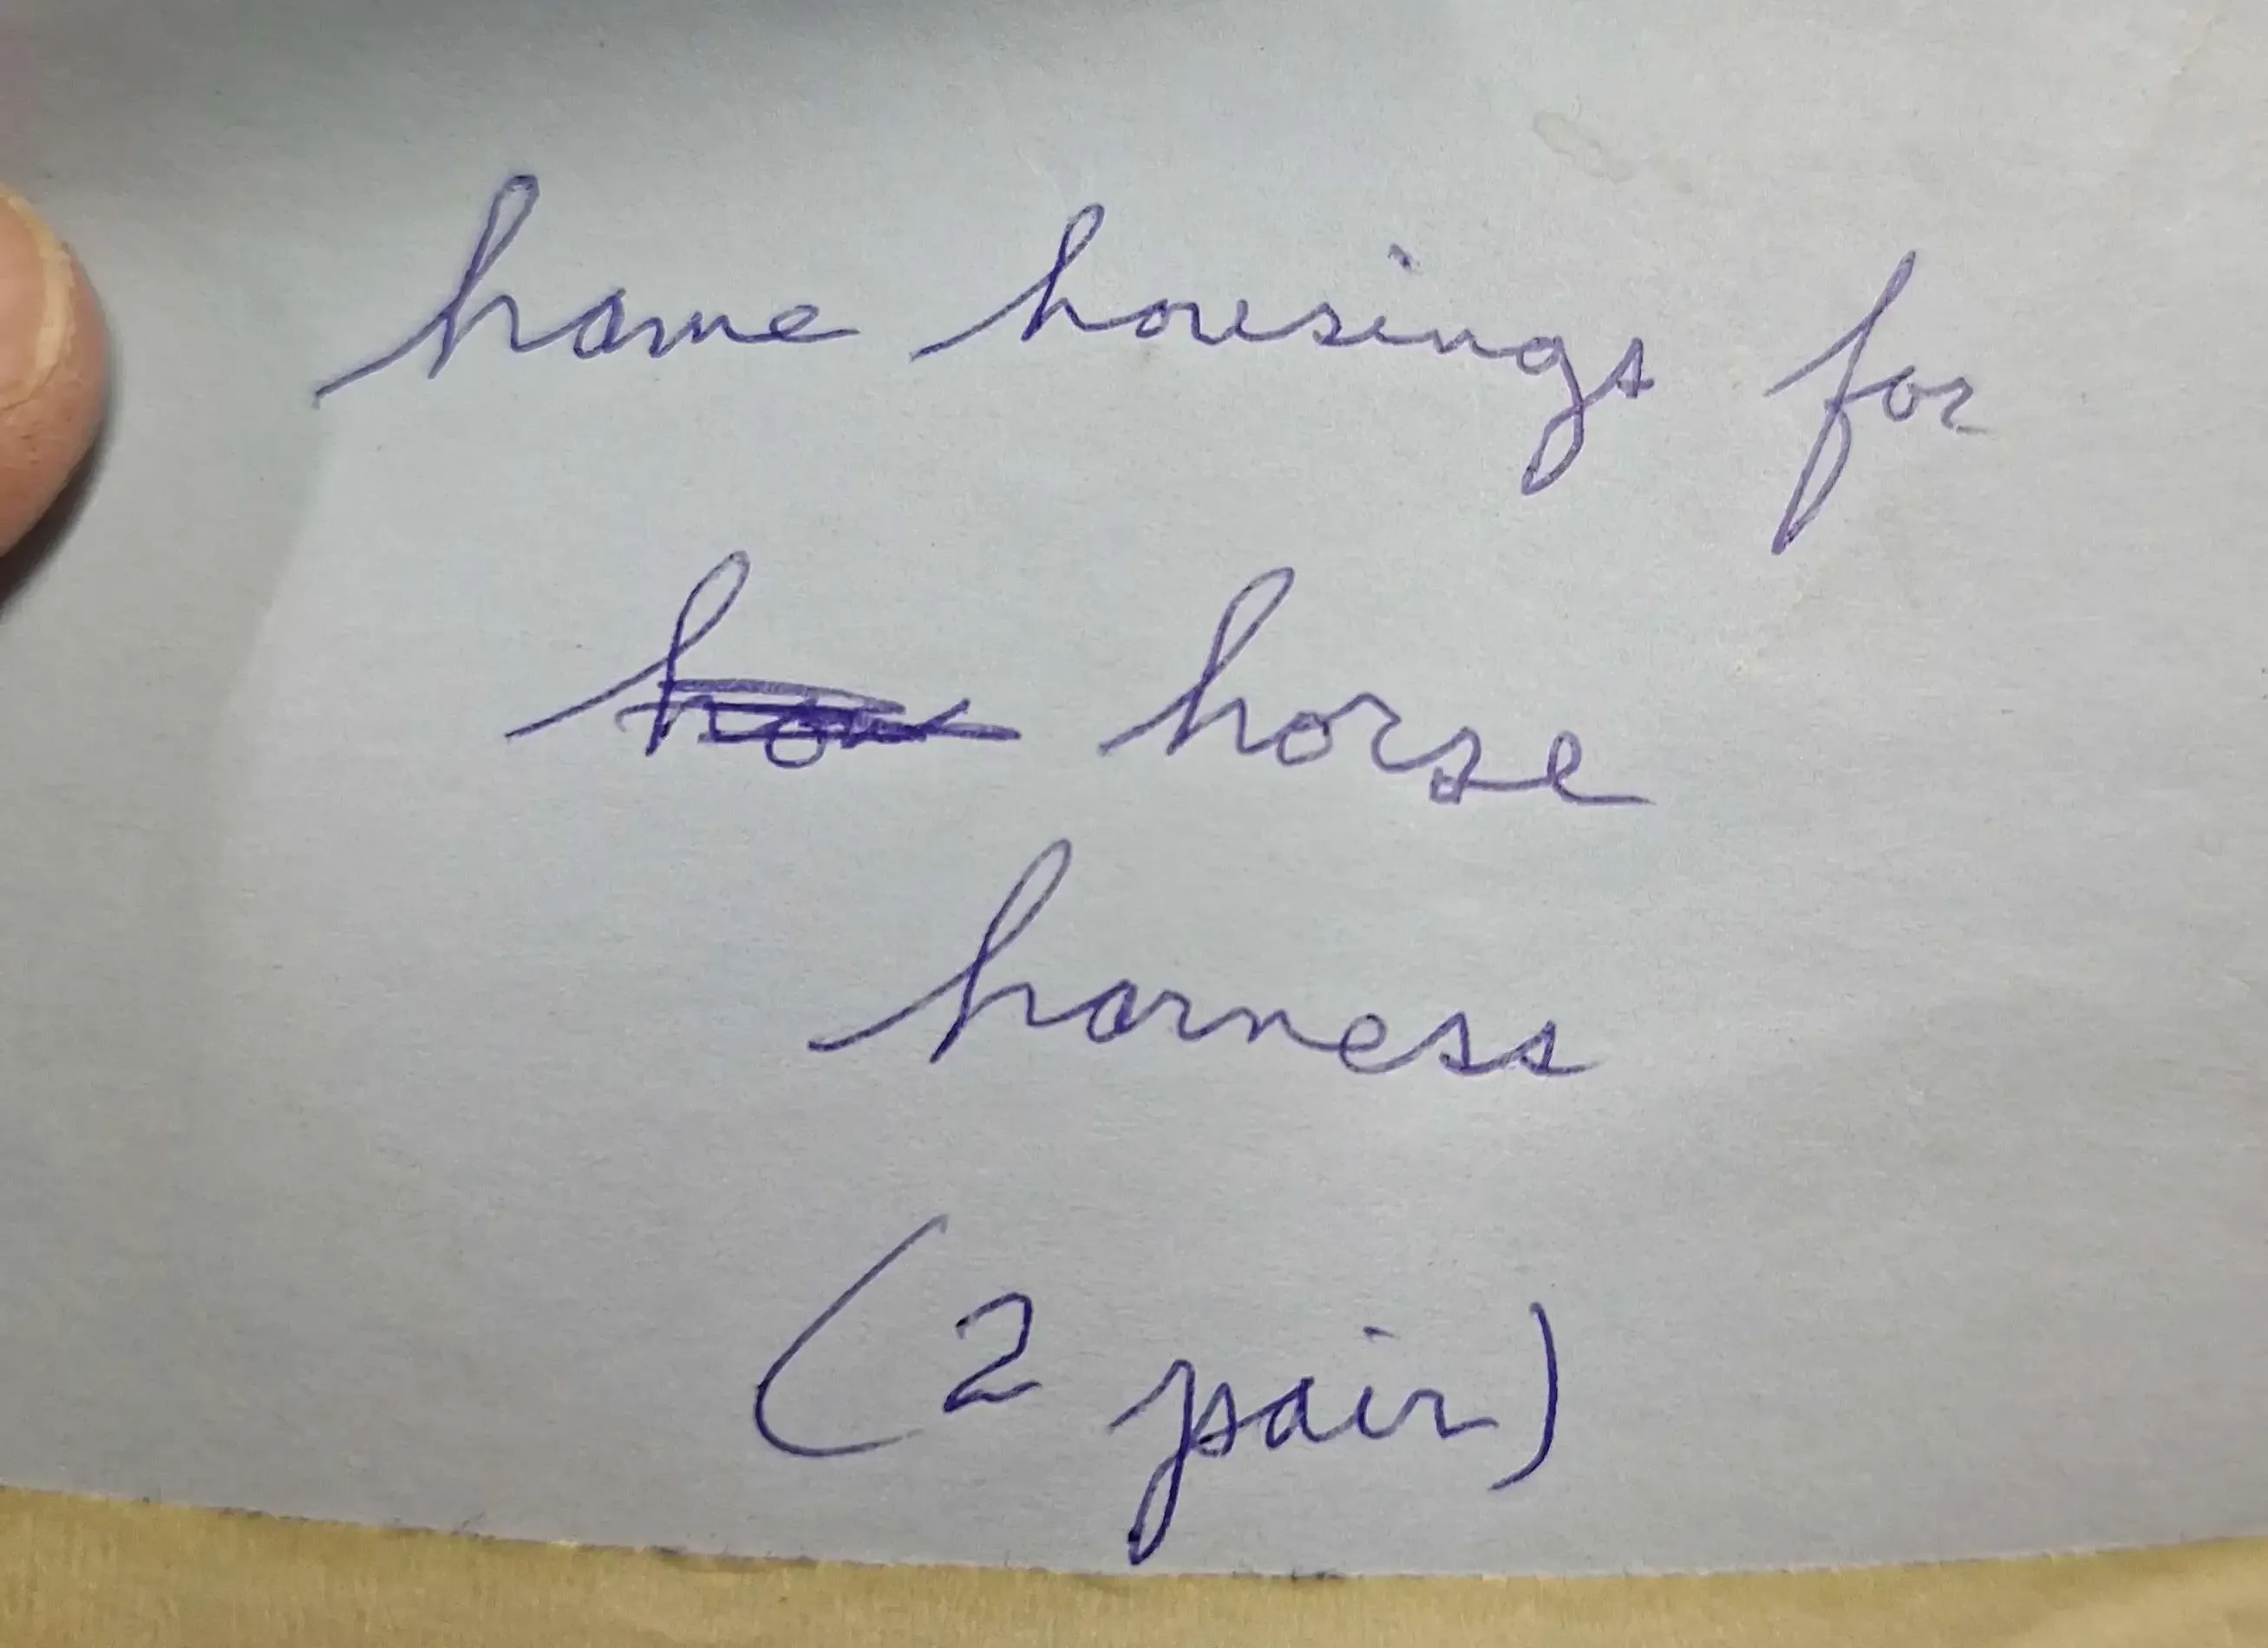 hame housings for
horse
harness
(2 pair)